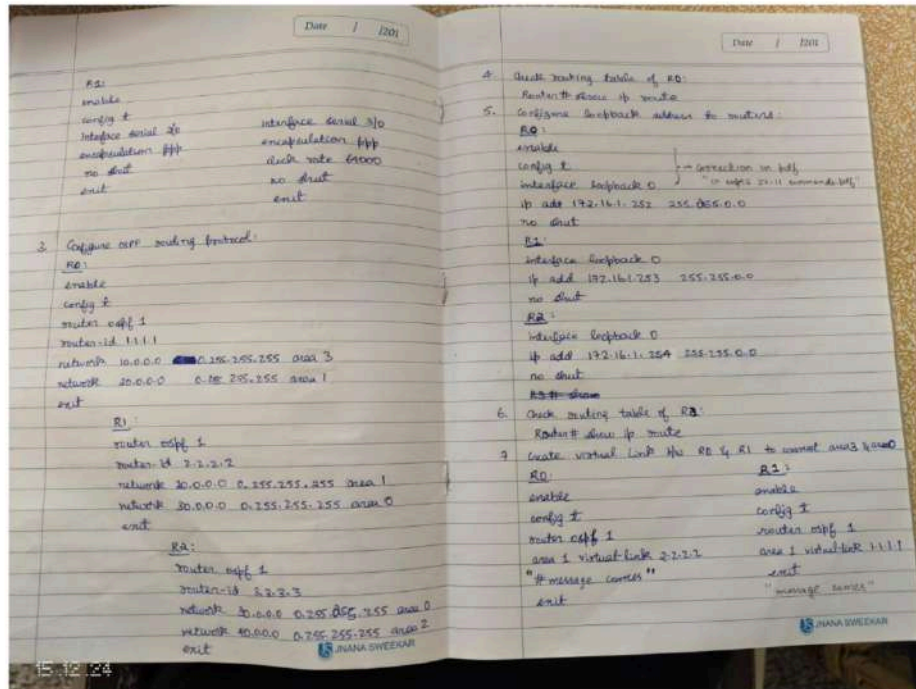 Date / /201
R1:
enable
config t
interface serial 2/0
encapsulation ppp
no shut
exit
interface serial 3/0
encapsulation ppp
clock rate 64000
no shut
exit
3. Configure OSPF routing protocol:
R0:
enable
config t
router ospf 1
router-id 1.1.1.1
network 10.0.0.0 0.255.255.255 area 3
network 20.0.0.0 0.255.255.255 area 1
exit
R1:
router ospf 1
router-id 2.2.2.2
network 20.0.0.0 0.255.255.255 area 1
network 30.0.0.0 0.255.255.255 area 0
exit
R2:
router ospf 1
router-id 3.3.3.3
network 30.0.0.0 0.255.255.255 area 0
network 40.0.0.0 0.255.255.255 area 2
exit
JNANA SWEEKAR
15.12.24
Date / /201
4. Check routing table of R0:
Router# show ip route
5. Configure loopback address to routers:
R0:
enable
config t
interface loopback 0
→ correction in pdf
ip add 172.16.1.252 255.255.0.0
no shut
R1:
interface loopback 0
ip add 172.16.1.253 255.255.0.0
no shut
R2:
interface loopback 0
ip add 172.16.1.254 255.255.0.0
no shut
6. Check routing table of R2:
Router# show ip route
7 Create virtual link b/w R0 & R1 to connect area3 & area0
R0:
enable
config t
router ospf 1
area 1 virtual-link 2.2.2.2
"# message comes"
exit
R1:
enable
config t
router ospf 1
area 1 virtual-link 1.1.1.1
exit
"message comes"
JNANA SWEEKAR